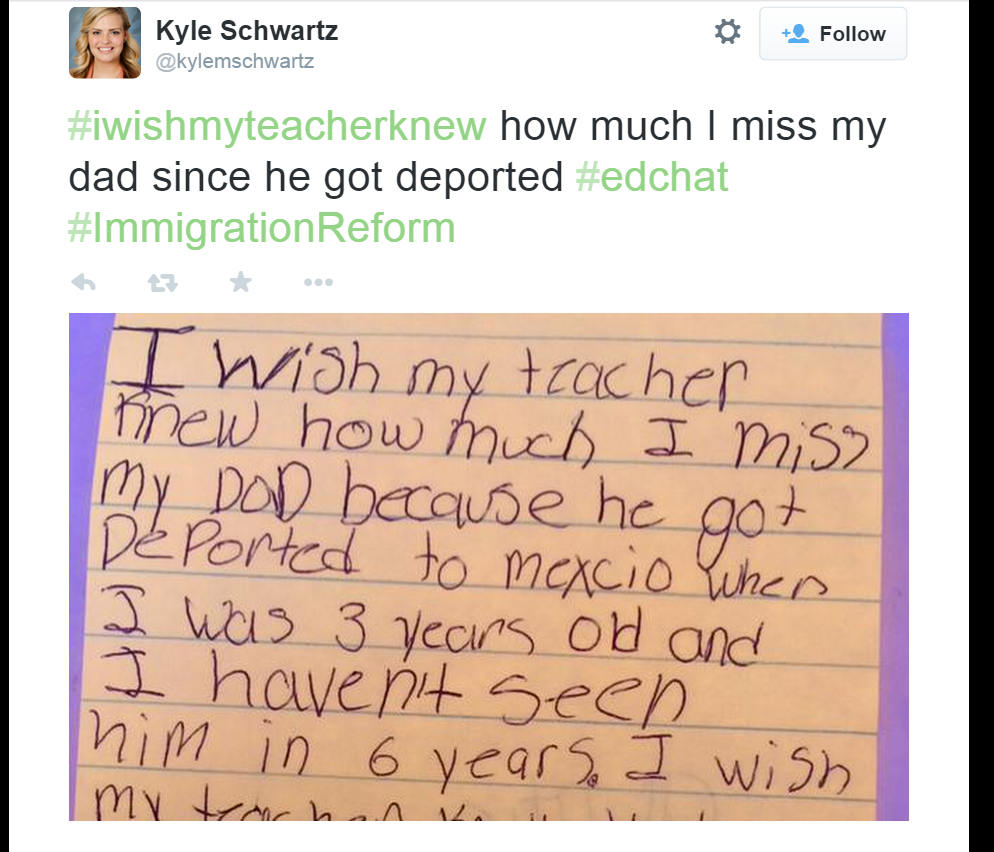 Kyle Schwartz
@kylemschwartz
Follow
#iwishmyteacherknew how much I miss my
dad since he got deported #edchat
#ImmigrationReform
I wish my teacher
knew how much I miss
my DaD because he got
DePorted to mexcio when
I was 3 years old and
I haven't seen
him in 6 years. I wish
my